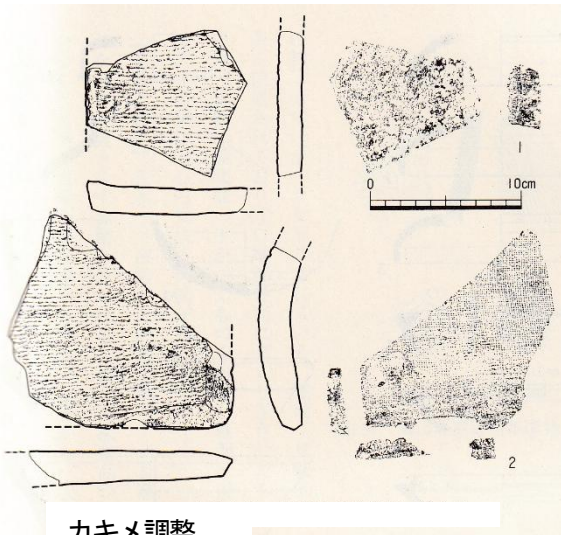 1
0 10cm
2
カキメ調整